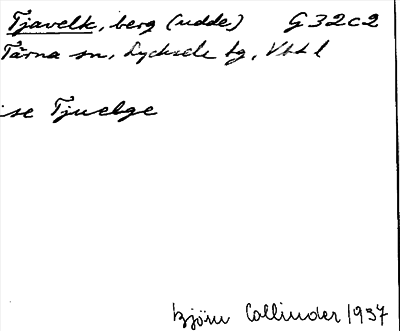 Tjavelk, berg (udde) G 32 c 2
Tärna sn, Lycksele tg, Vbtl
se Tjuelge
Björn Collinder 1937